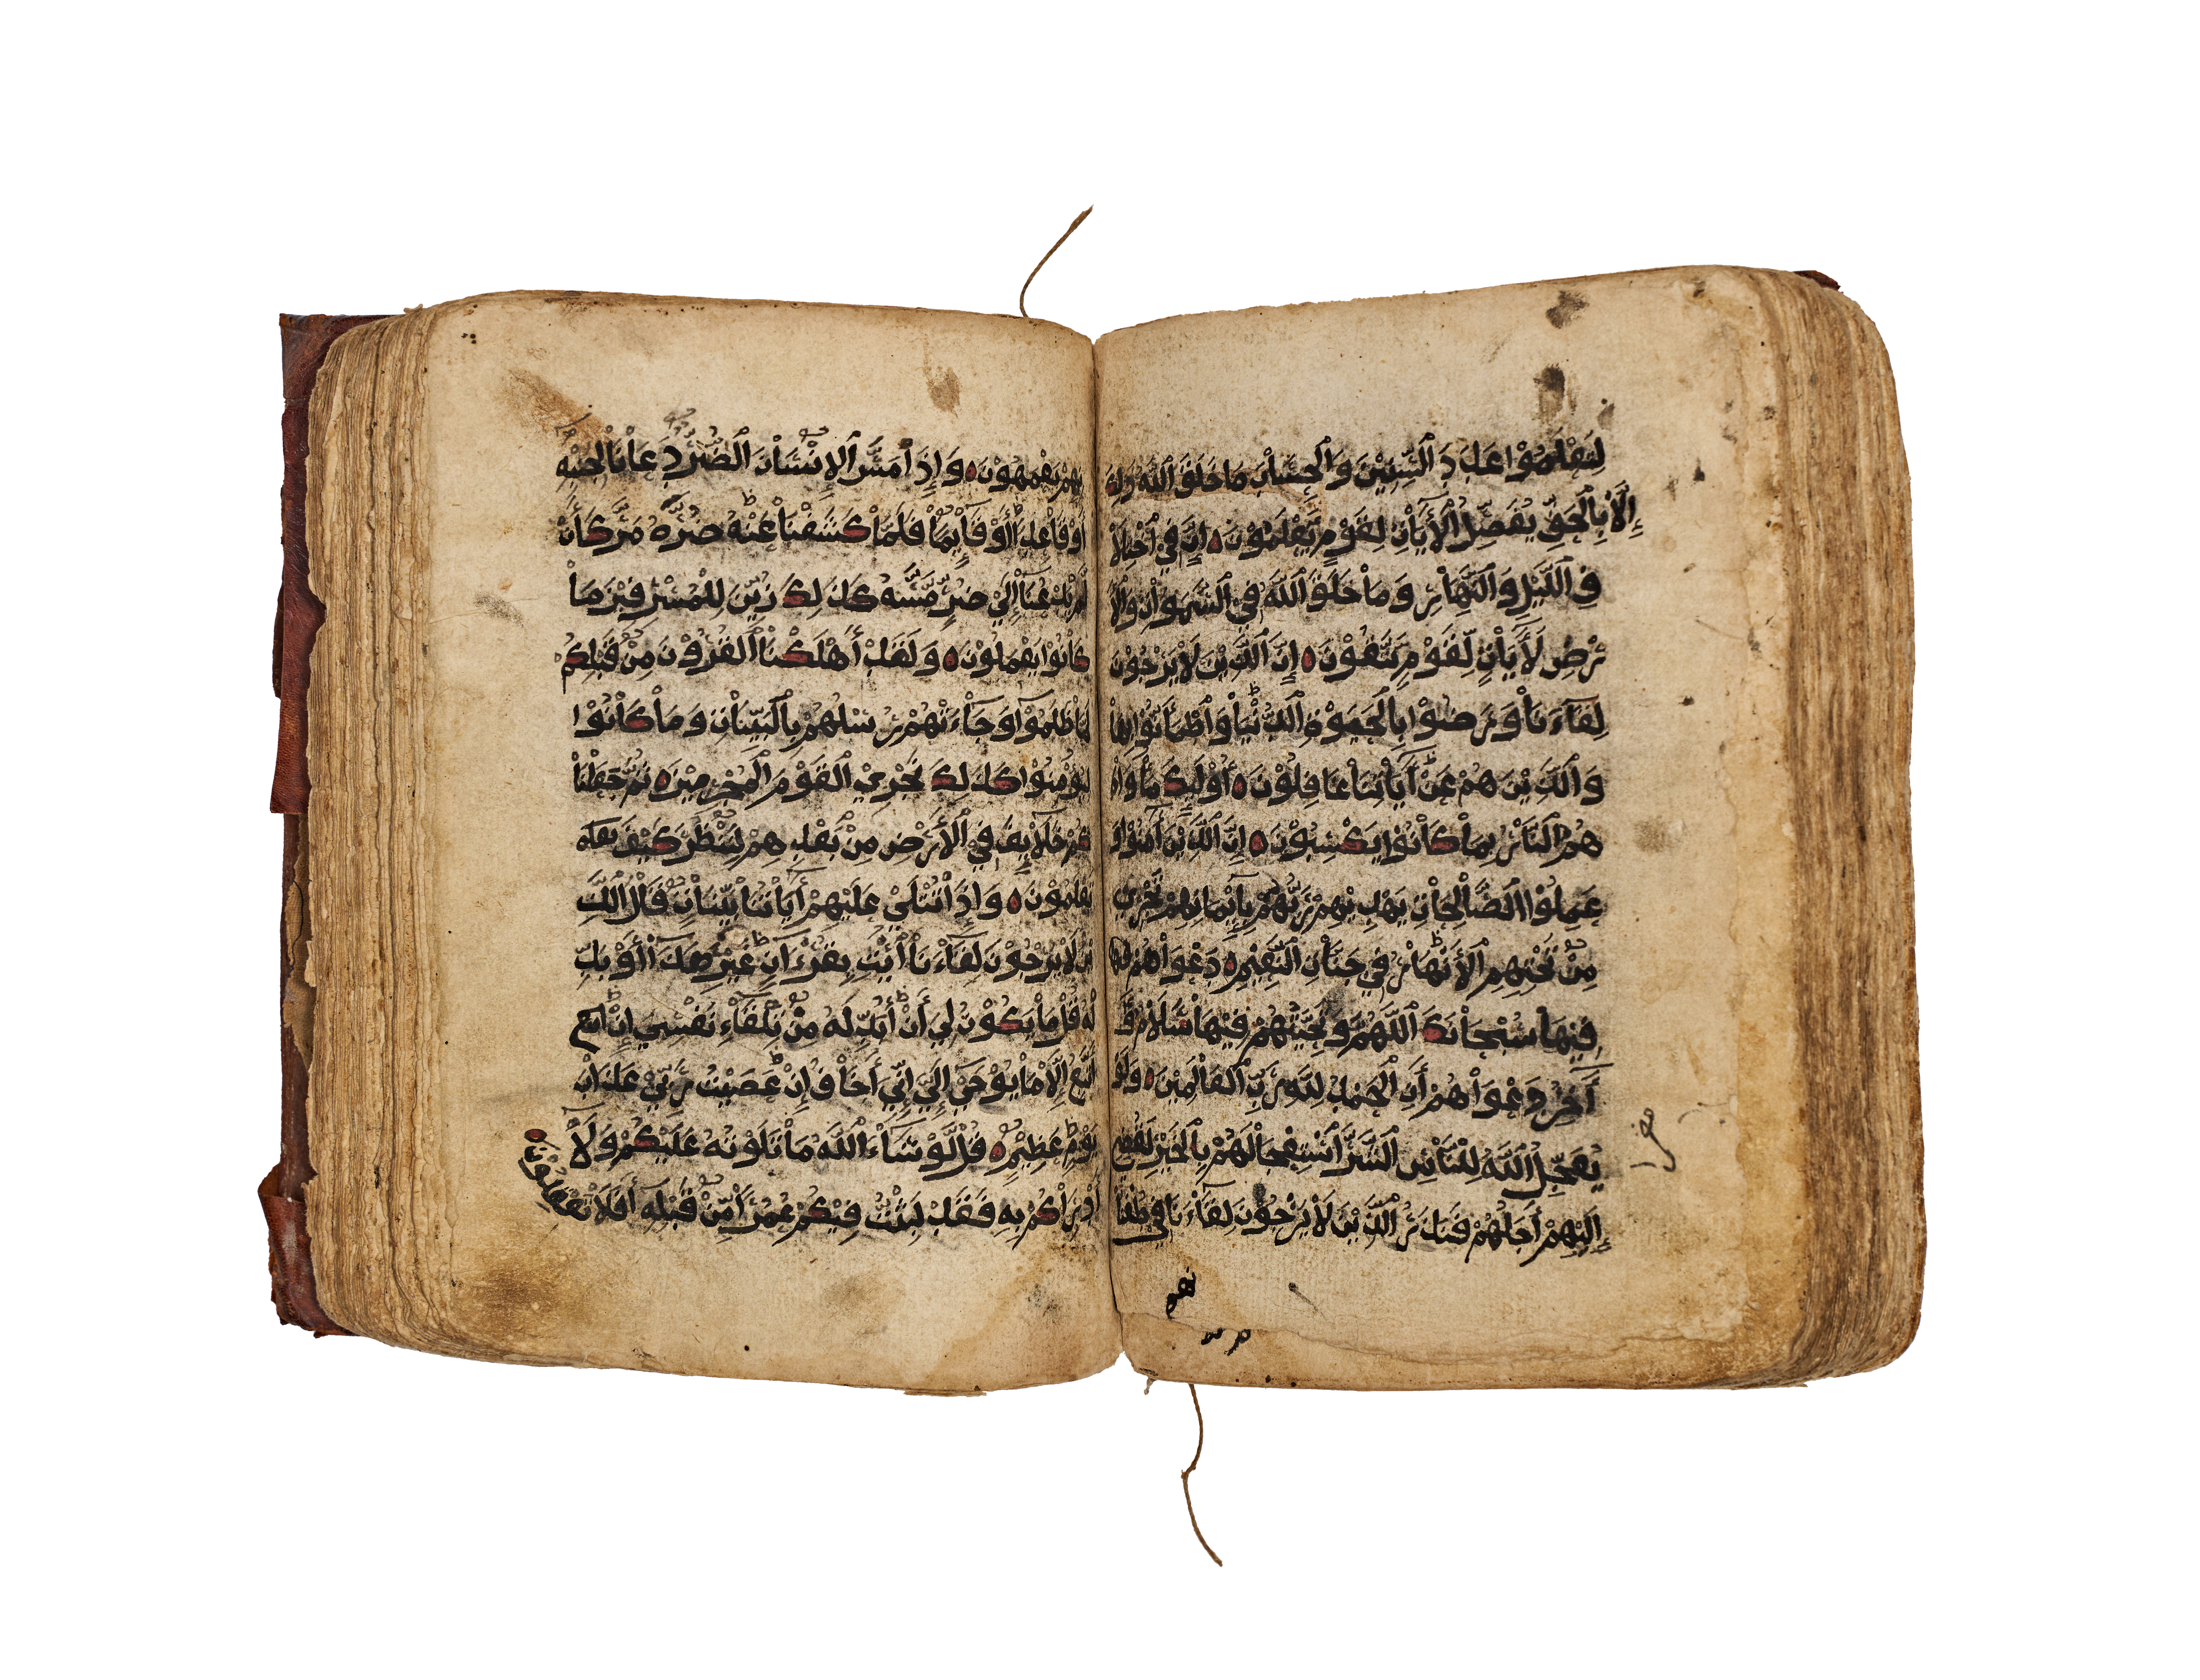 لِتَعْلَمُوْا عَدَدَ ٱلسِّنِيْنَ وَٱلْحِسَاْبَ مَا خَلَقَ ٱللَّهُ ذَلِكَ
إِلَّاْ بِٱلْحَقِّ يُفَصِّلُ ٱلْأَيَاْتِ لِقَوْمٍ يَعْلَمُوْنَ ۝ إِنَّ فِي ٱخْتِلَاْ
فِ ٱللَّيْلِ وَٱلنَّهَاْرِ وَمَاْ خَلَقَ ٱللَّهُ فِي ٱلسَّمَوَاْتِ وَٱلْأَ
رْضِ لَأَيَاْتٍ لِّقَوْمٍ يَتَّقُوْنَ ۝ إِنَّ ٱلَّذِيْنَ لَاْ يَرْجُوْنَ
لِقَاْءَنَاْ وَرَضُوْا بِٱلْحَيَوٰةِ ٱلدُّنْيَاْ وَٱطْمَأَنُّوْا بِهَاْ
وَٱلَّذِيْنَ هُمْ عَنْ أَيَاْتِنَاْ غَافِلُوْنَ ۝ أُوْلَئِكَ مَأْوَاْ
هُمُ ٱلنَّاْرُ بِمَاْ كَاْنُوْا يَكْسِبُوْنَ ۝ إِنَّ ٱلَّذِيْنَ أَمَنُوْا وَ
عَمِلُوْا ٱلصَّاْلِحَاْتِ يَهْدِيْهِمْ رَبُّهُمْ بِإِيْمَانِهِمْ تَجْرِي
مِنْ تَحْتِهِمُ ٱلْأَنْهَاْرُ فِي جَنَّاْتِ ٱلنَّعِيْمِ ۝ دَعْوَاْهُمْ
فِيْهَاْ سُبْحَاْنَكَ ٱللَّهُمَّ وَتَحِيَّتُهُمْ فِيْهَاْ سَلَاْمٌ وَ
أَخِرُ دَعْوَاْهُمْ أَنِ ٱلْحَمْدُ لِلَّهِ رَبِّ ٱلْعَالَمِيْنَ ۝ وَلَوْ
يُعَجِّلُ ٱللَّهُ لِلنَّاْسِ ٱلشَّرَّ ٱسْتِعْجَاْلَهُمْ بِٱلْخَيْرِ لَقُضِيَ
إِلَيْهِمْ أَجَلُهُمْ فَنَذَرُ ٱلَّذِيْنَ لَاْ يَرْجُوْنَ لِقَاْءَنَا فِي طُغْيَا
نهم
نِهِمْ يَعْمَهُوْنَ ۝ وَإِذَا مَسَّ ٱلْإِنْسَاْنَ ٱلضُّرُّ دَعَاْنَاْ لِجَنْبِهِ
أَوْ قَاْعِدًا أَوْ قَاْئِمًاْ فَلَمَّاْ كَشَفْنَاْ عَنْهُ ضُرَّهُ مَرَّ كَأَنْ
لَّمْ يَدْعُنَاْ إِلَيْ ضُرٍّ مَّسَّهُ كَذَلِكَ زُيِّنَ لِلْمُسْرِفِيْنَ مَاْ
كَاْنُوْا يَعْمَلُوْنَ ۝ وَلَقَدْ أَهْلَكْنَا ٱلْقُرُوْنَ مِنْ قَبْلِكُمْ
لَمَّاْ ظَلَمُوْا وَجَاْءَتْهُمْ رُسُلُهُمْ بِٱلْبَيِّنَاْتِ وَمَاْ كَاْنُوْا
لِيُؤْمِنُوْا كَذَلِكَ نَجْزِيْ ٱلْقَوْمَ ٱلْمُجْرِمِيْنَ ۝ ثُمَّ جَعَلْنَاْ
كُمْ خَلَاْئِفَ فِي ٱلْأَرْضِ مِنْ بَعْدِهِمْ لِنَنْظُرَ كَيْفَ
تَعْمَلُوْنَ ۝ وَإِذَاْ تُتْلَيْ عَلَيْهِمْ أَيَاْتُنَاْ بَيِّنَاْتٍ قَاْلَ ٱلَّذِ
يْنَ لَاْ يَرْجُوْنَ لِقَاْءَنَاْ ٱئْتِ بِقُرْءَانٍ غَيْرِ هَذَاْ أَوْ بَدِّ
لْهُ قُلْ مَاْ يَكُوْنُ لِي أَنْ أُبَدِّلَهُ مِنْ تِلْقَاْءِ نَفْسِي إِنْ أَتَّبِعُ
إِلَّا مَاْ يُوْحَيْ إِلَيَّ إِنِّي أَخَاْفُ إِنْ عَصَيْتُ رَبِّيْ عَذَاْبَ
يَوْمٍ عَظِيْمٍ ۝ قُلْ لَّوْ شَاْءَ ٱللَّهُ مَاْ تَلَوْتُهُ عَلَيْكُمْ وَلَاْ
أَدْرَاْكُمْ بِهِ فَقَدْ لَبِثْتُ فِيْكُمْ عُمُرًاْ مِّنْ قَبْلِهِ أَفَلَاْ تَعْقِلُوْنَ ۝